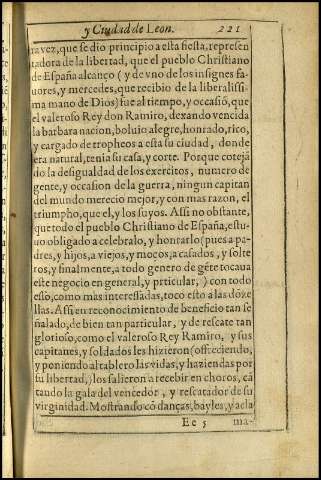 y Ciudad de Leon. 221
ra vez, que se dio principio a esta fiesta, represen
tadora de la libertad, que el pueblo Christiano
de España alcanço (y de vno de los insignes fa-
uores, y mercedes, que recibio de la liberalissi
ma mano de Dios) fue al tiempo, y occasiō, que
el valeroso Rey don Ramiro, dexando vencida
la barbara nacion, boluio alegre, honrado, rico,
y cargado de tropheos a esta su ciudad, donde
era natural, tenia su casa, y corte. Porque cotejā
do la desigualdad de los exercitos, numero de
gente, y occasion de la guerra, ningun capitan
del mundo merecio mejor, y con mas razon, el
triumpho, que el, y los suyos. Assi no obstante,
que todo el pueblo Christiano de España, estu-
uo obligado a celebralo, y honrarlo (pues a pa-
dres, y hijos, a viejos, y moços, a casados, y solte
ros, y finalmente, a todo genero de gēte tocaua
este negocio en general, y prticular,) con todo
esso, como mas interessadas, toco esto a las dōze
llas. Assi en reconocimiento de beneficio tan se
ñalado, de bien tan particular, y de rescate tan
glorioso, como el valeroso Rey Ramiro, y sus
capitanes, y soldados les hizieron (offreciendo,
y poniendo al tablero las vidas, y haziendas por
su libertad,) los salieron a recebir en choros, cā
tando la gala del vencedor, y rescatador de su
virginidad. Mostrando cō danças, bayles, y acla
Ee 5 ma-